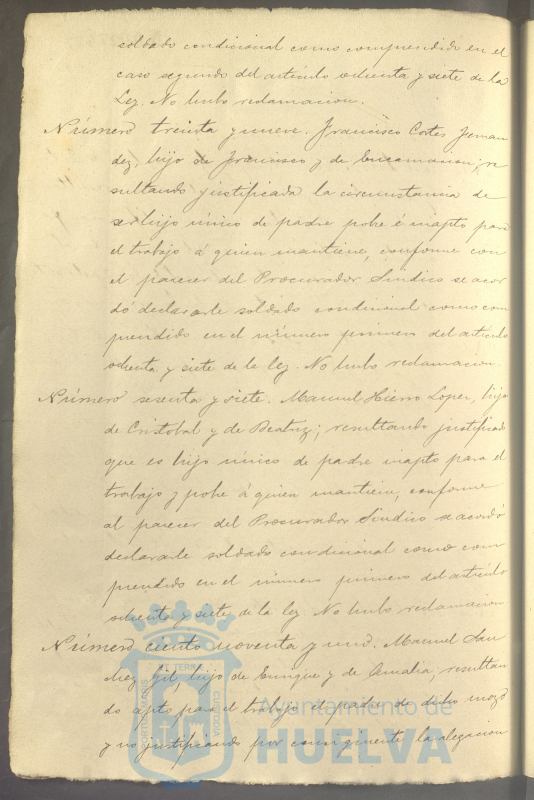 soldado condicional como comprendido en el
caso segundo del artículo ochenta y siete de la
Ley. No hubo reclamacion.
Número treinta y nueve. Francisco Cortes Fernan
dez, hijo de Francisco y de Encarnacion; re
sultando justificada la circunstancia de
ser hijo único de padre pobre é inapto para
el trabajo á quien mantiene, conforme con
el parecer del Procurador Sindico se acor
dó declararle soldado condicional como com
prendido en el número primero del artículo
ochenta y siete de la ley. No hubo reclamacion.
Número sesenta y siete. Manuel Hierro Lopez, hijo
de Cristobal y de Beatriz; resultando justificado
que es hijo único de padre inapto para el
trabajo y pobre á quien mantiene, conforme
al parecer del Procurador Sindico se acordó
declararle soldado condicional como com
prendido en el número primero del artículo
ochenta y siete de la ley. No hubo reclamacion
Número ciento noventa y uno. Manuel San
chez Gil, hijo de Enrique y de Amalia; resultan
do apto para el trabajo el padre de dicho mozo
y no justificando por consiguiente la alegacion
Ayuntamiento de
HUELVA
PORTUS MARIS ET TERRE CUSTODIA